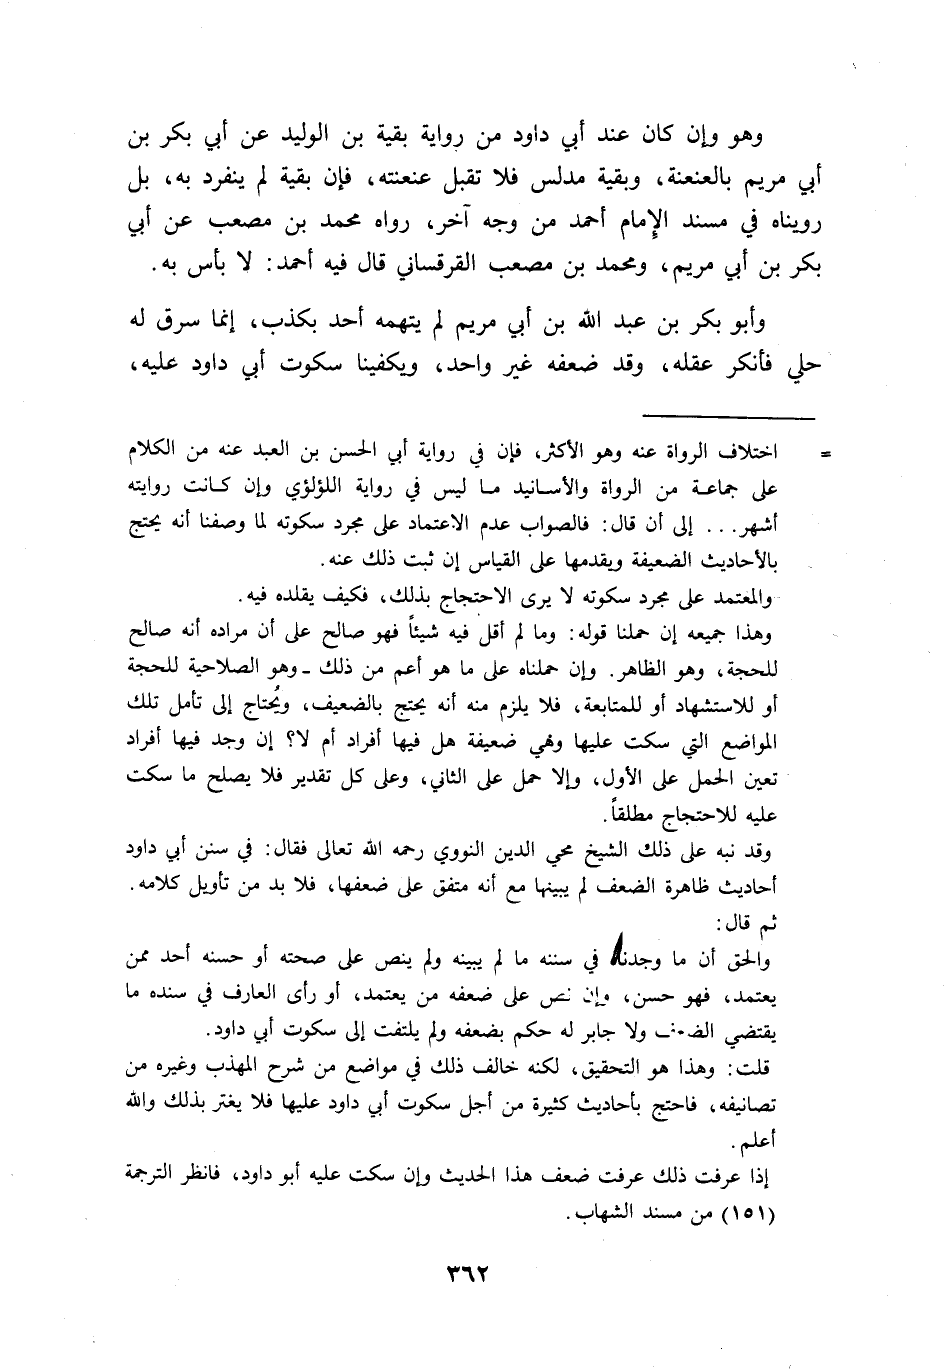 وهو وإن كان عند أبي داود من رواية بقية بن الوليد عن أبي بكر بن
أبي مريم بالعنعنة، وبقية مدلس فلا تقبل عنعنته، فإن بقية لم ينفرد به، بل
رويناه في مسند الإمام أحمد من وجه آخر، رواه محمد بن مصعب عن أبي
بكر بن أبي مريم، ومحمد بن مصعب القرقساني قال فيه أحمد: لا بأس به.
وأبو بكر بن عبد الله بن أبي مريم لم يتهمه أحد بكذب، إنما سرق له
حلي فأنكر عقله، وقد ضعفه غير واحد، ويكفينا سكوت أبي داود عليه،
= اختلاف الرواة عنه وهو الأكثر، فإن في رواية أبي الحسن بن العبد عنه من الكلام
على جماعة من الرواة والأسانيد ما ليس في رواية اللؤلؤي وإن كانت روايته
أشهر... إلى أن قال: فالصواب عدم الاعتماد على مجرد سكوته لما وصفنا أنه يحتج
بالأحاديث الضعيفة ويقدمها على القياس إن ثبت ذلك عنه.
والمعتمد على مجرد سكوته لا يرى الاحتجاج بذلك، فكيف يقلده فيه.
وهذا جميعه إن حملنا قوله: وما لم أقل فيه شيئاً فهو صالح على أن مراده أنه صالح
للحجة، وهو الظاهر. وإن حملناه على ما هو أعم من ذلك ـ وهو الصلاحية للحجة
أو للاستشهاد أو للمتابعة، فلا يلزم منه أنه يحتج بالضعيف، ويُحتاج إلى تأمل تلك
المواضع التي سكت عليها وهي ضعيفة هل فيها أفراد أم لا؟ إن وجد فيها أفراد
تعين الحمل على الأول، وإلا حمل على الثاني، وعلى كل تقدير فلا يصلح ما سكت
عليه للاحتجاج مطلقاً.
وقد نبه على ذلك الشيخ محي الدين النووي رحمه الله تعالى فقال: في سنن أبي داود
أحاديث ظاهرة الضعف لم يبينها مع أنه متفق على ضعفها، فلا بد من تأويل كلامه.
ثم قال:
والحق أن ما وجدنا في سننه ما لم يبينه ولم ينص على صحته أو حسنه أحد ممن
يعتمد، فهو حسن، وإن نص على ضعفه من يعتمد، أو رأى العارف في سنده ما
يقتضي الضعف ولا جابر له حكم بضعفه ولم يلتفت إلى سكوت أبي داود.
قلت: وهذا هو التحقيق، لكنه خالف ذلك في مواضع من شرح المهذب وغيره من
تصانيفه، فاحتج بأحاديث كثيرة من أجل سكوت أبي داود عليها فلا يغتر بذلك والله
أعلم.
إذا عرفت ذلك عرفت ضعف هذا الحديث وإن سكت عليه أبو داود، فانظر الترجمة
(١٥١) من مسند الشهاب.
٣٦٢